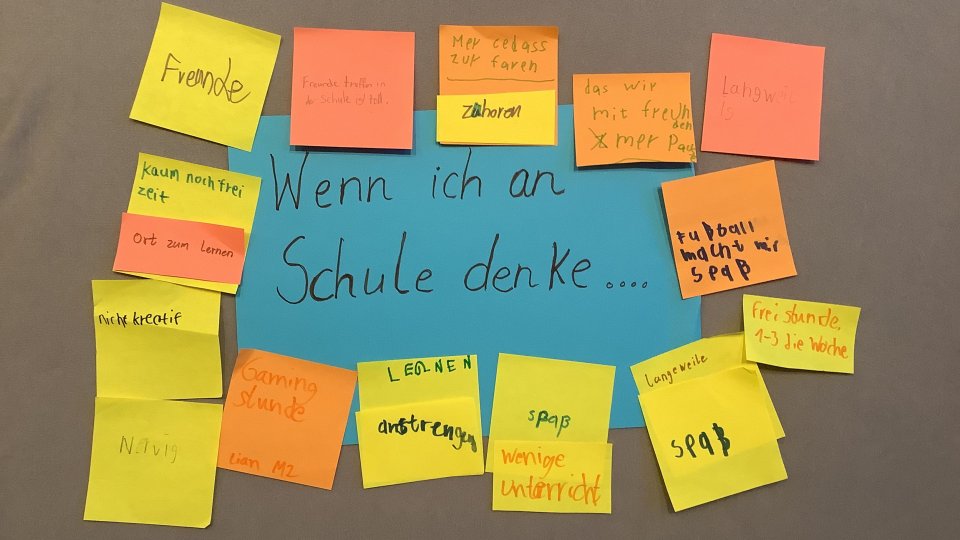 Freunde
Freunde treffen in
der Schule ist toll.
Mer cedass
zur faren
zuhoren
das wir
mit freun
den
mer Pauz
Langweil
ig
Kaum noch frei
zeit
Ort zum Lernen
Wenn ich an
Schule denke....
Fußball
macht mir
spaß
Freistunde,
1-3 die Woche
nicht kreatif
Nervig
Gaming
stunde
Lian M2
LERNEN
anstrengen
spaß
wenige
unterricht
Langeweile
spaß